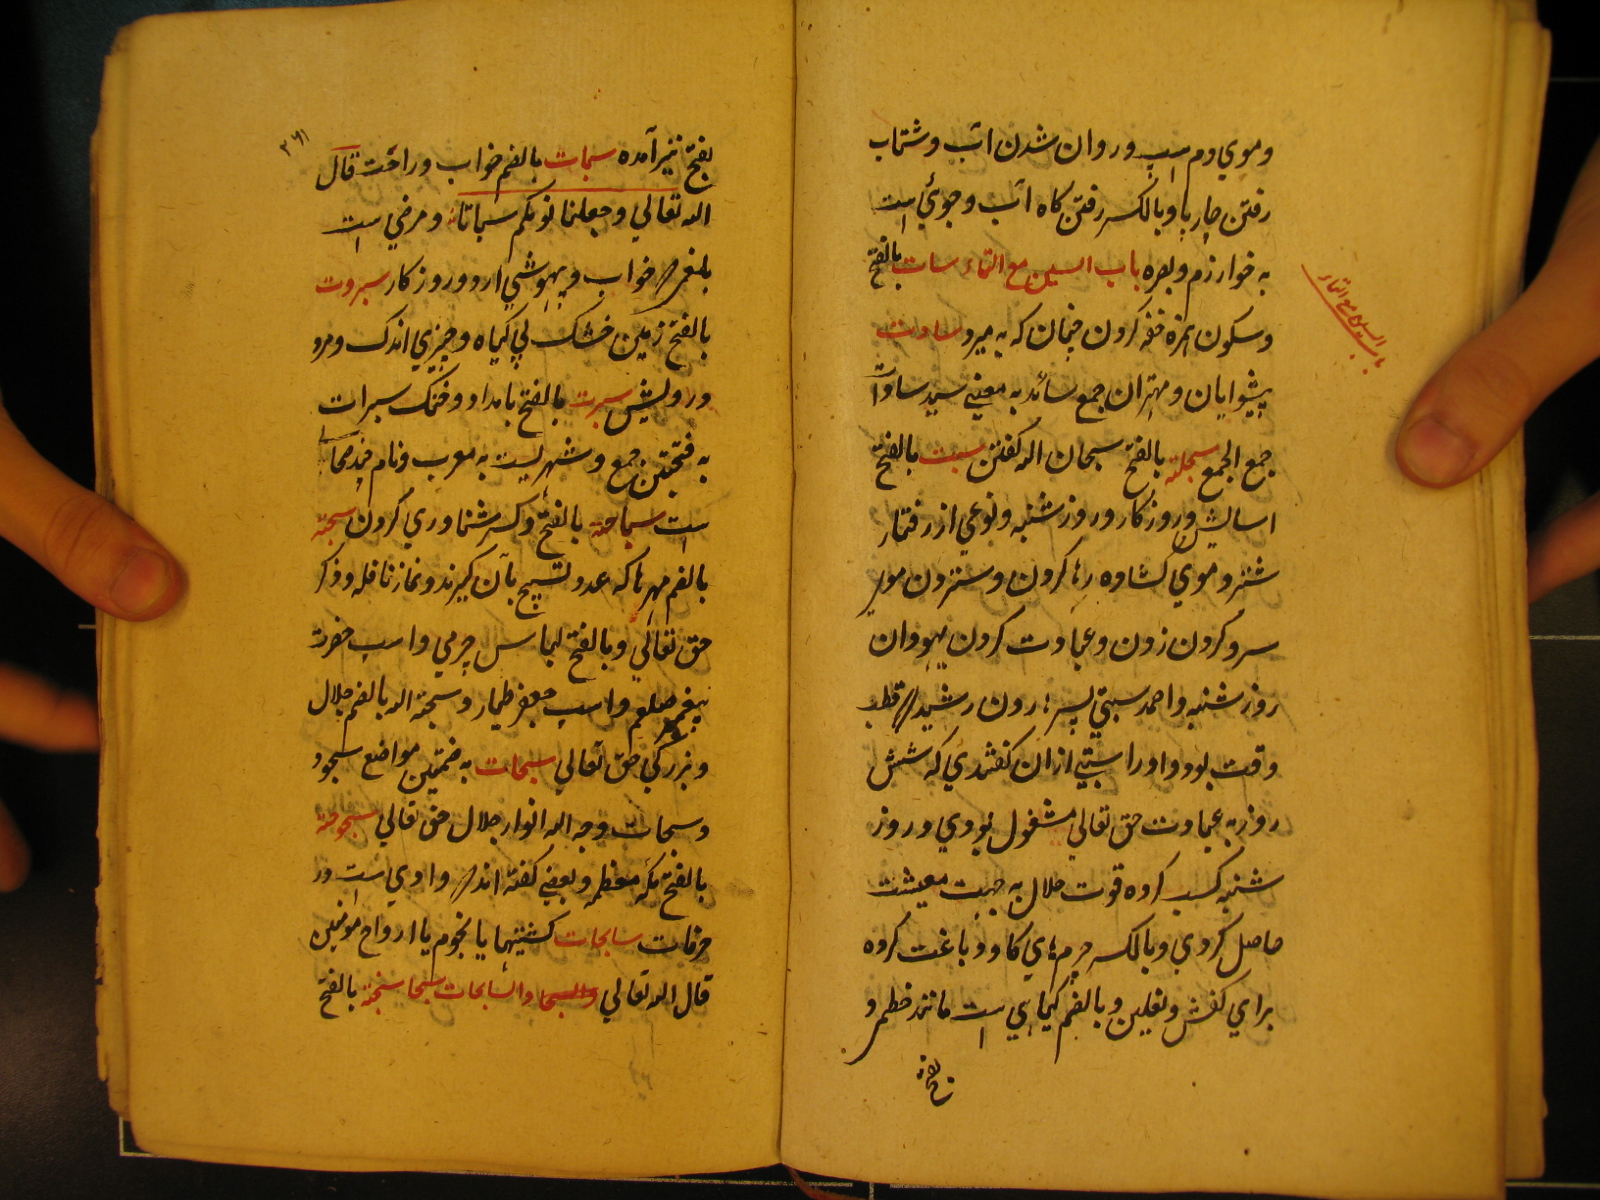 و موي دم اسپ و روان شدن آب و شتاب
رفتن چارپا و بالكسر رفتن كاه آب و جوئي است
به خوارزم و بصره باب السين مع التاء سات بالفتح
و سكون همزه خفه كردن چنان كه به ميرد سادت
پيشوايان و مهتران جمع سائد به معني سيد سادات
جمع الجمع سبحلة بالفتح سبحان الله كفتن سبت بالفتح
اسايش و روزكار و روز شنبه و نوعي از رفتار
شتر و موي كشاده رها كردن و ستردن موي
سر و كردن زدن و عبادت كردن يهودان
روز شنبه و احمد سبتي پسر هارون رشيد قطب
وقت بود و او را سبتي ازان كفتندي كه شش
روز به عبادت حق تعالي مشغول بودي و روز
شنبه كسب كرده قوت حلال به جهت معيشت
حاصل كردي و بالكسر چرم هاي كاو دباغت كرده
براي كفش و نعلين و بالضم كياهي است مانند خطمي و
بفتح
باب السين مع التاء
٣٦١
بفتح نيز آمده سبات بالضم خواب و راحت قال
الله تعالي و جعلنا نومكم سباتا و مرضي است
بلغمي خواب و بيهوشي ارد و روزكار سبروت
بالفتح زمين خشك بي كياه و چيزي اندك و مرد
درويش سبرت بالفتح بامداد و خنك سبرات
به فتحتين جمع و شهريست به مغرب و نام چند صحابي
است سباحة بالفتح و كسر شناوري كردن سبحة
بالضم مهرها كه عدد تسبيح بآن كيرند و نماز نافله و ذكر
حق تعالي و بالفتح لباس چرمي و اسپ حضرت
پيغمبر صلعم و اسپ جعفر طيار و سبحة الله بالضم جلال
و بزركي حق تعالي سبحات به ضمتين مواضع سجود
و سبحات وجه الله انوار جلال حق تعالي سبوحة
بالفتح مكه معظمه و بعضي كفته اند وادي است در
عرفات سابحات كشتيها يا نجوم يا ارواح مومنين
قال الله تعالي والسابحات سبحا سبخة بالفتح